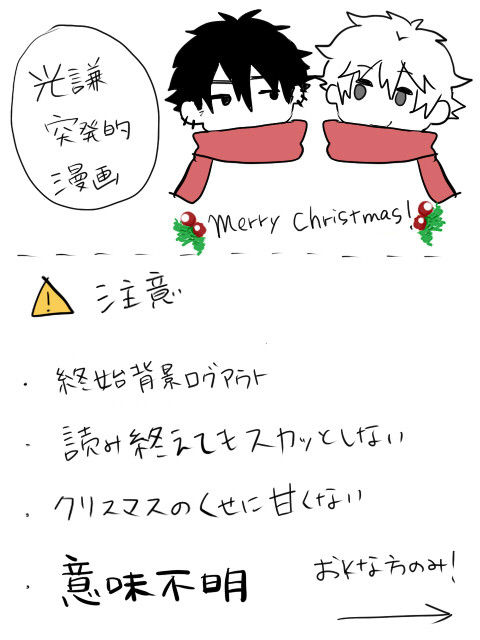 光謙
突発的
漫画
Merry Christmas!
! 注意
・終始背景ログアウト
・読み終えてもスカッとしない
・クリスマスのくせに甘くない
・意味不明
おkな方のみ!